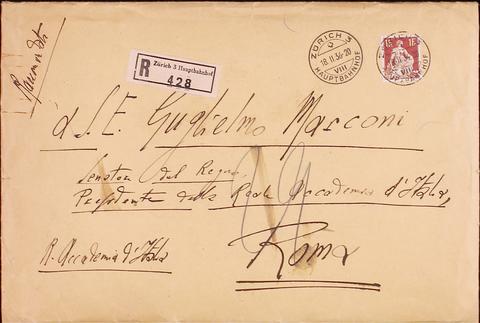 Raccomandata
R Zürich 3 Hauptbahnhof
428
ZÜRICH 3
18.II.36-20
VIII
HAUPTBAHNHOF
1 F.
VIII
HAUPTBAHNHOF
a S.E. Guglielmo Marconi
Senatore del Regno,
Presidente della Reale Accademia d'Italia,
R. Accademia d'Italia
Roma